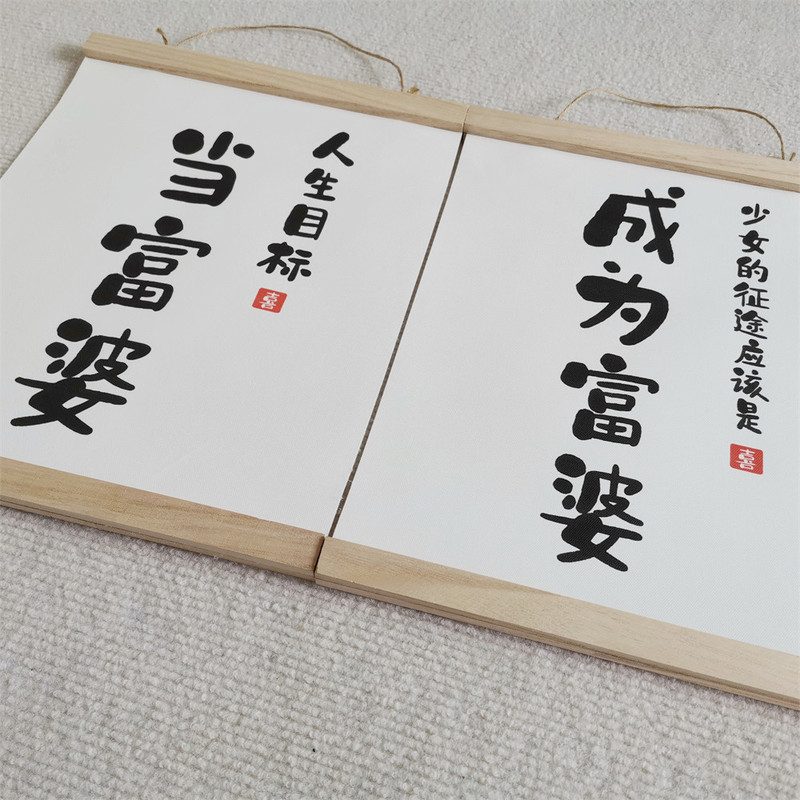 人生目标
当富婆
少女的征途应该是
成为富婆